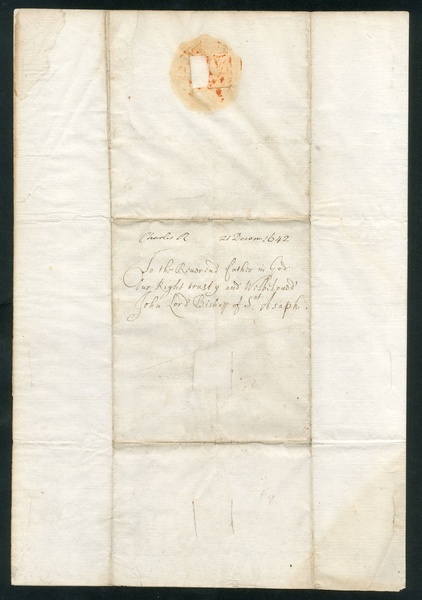 Charles R 21 Decem: 1642
To the Reverend father in God
Our Right trusty and Welbeloved
John Lord Bishop of St Asaph.